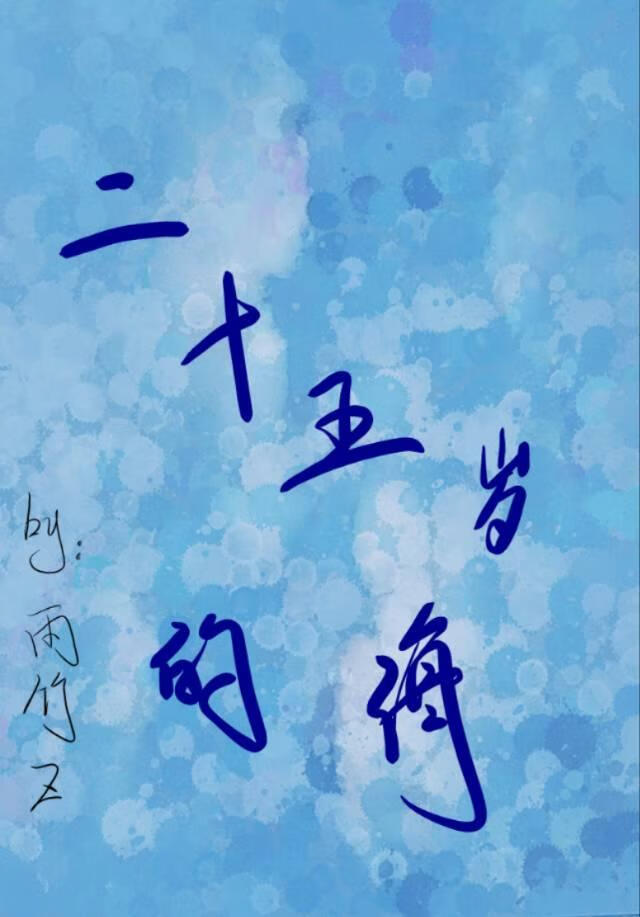 二十五岁
的海
by:雨竹Z